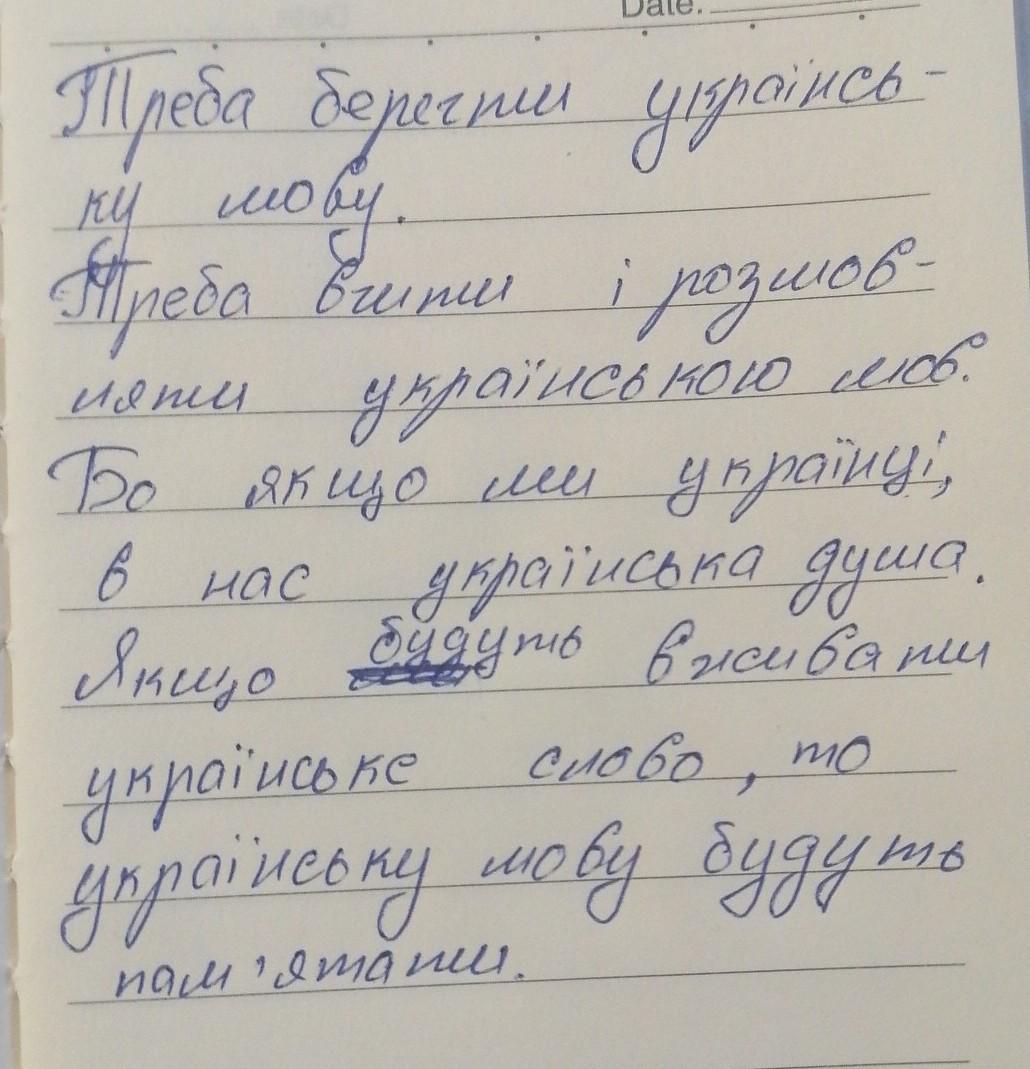 Date.
Треба берегти українсь-
ку мову.
Треба вчити і розмов-
ляти українською мов.
Бо якщо ми українці,
в нас українська душа.
Якщо будуть вживати
українське слово, то
українську мову будуть
пам'ятати.